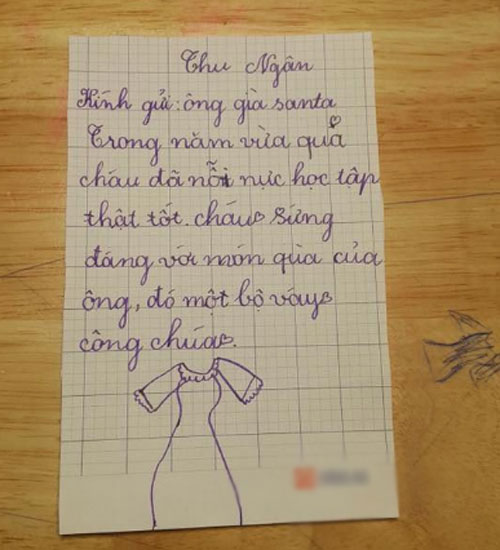 Thu Ngân
Kính gửi: ông già santa
Trong năm vừa quả
cháu đã nỗi nực học tập
thật tốt. cháu sứng
đáng với món quà của
ông, đó một bộ váy
công chúa.